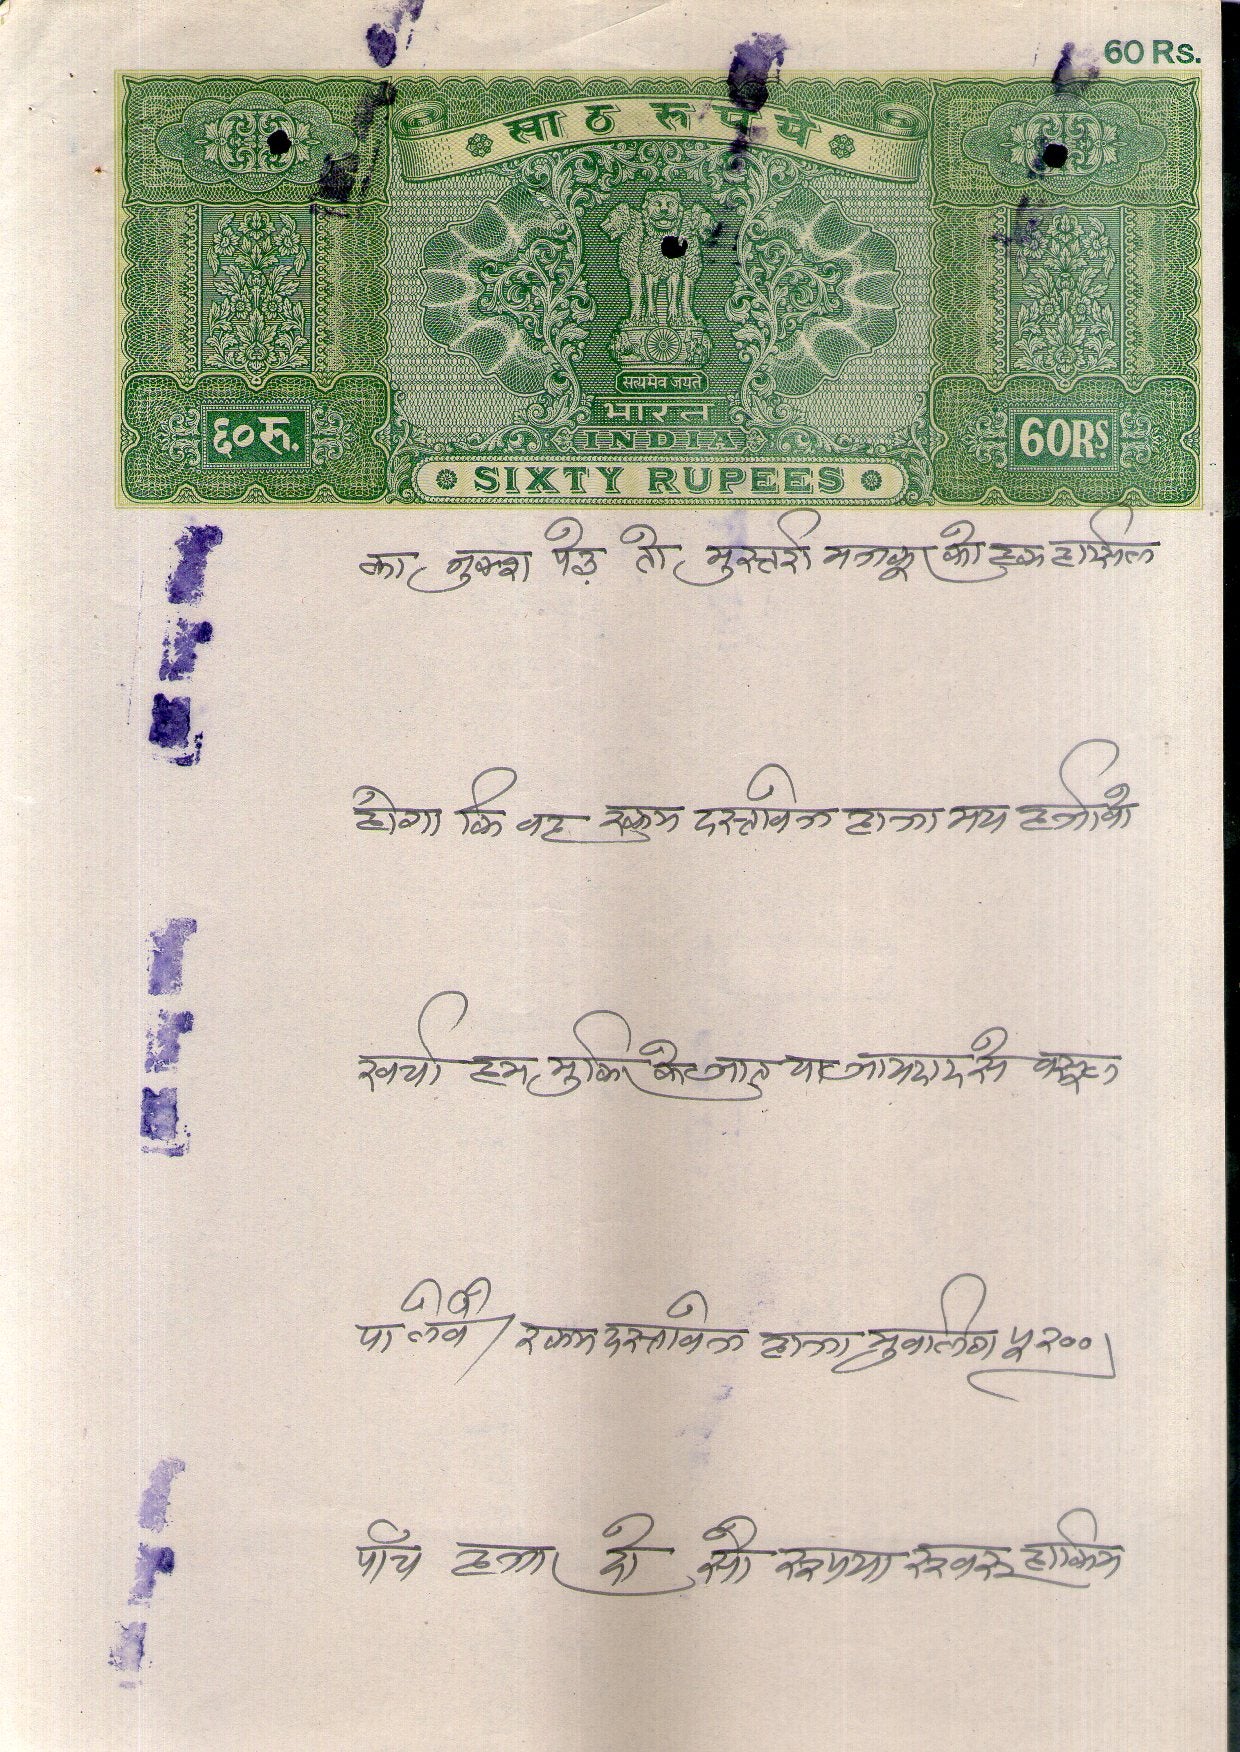 60 Rs.
साठ रूपये
सत्यमेव जयते
भारत
INDIA
६०रू.
60Rs.
SIXTY RUPEES
का नुक्श पड़े तो मुस्तरी मजकूर को हक हासिल
होगा कि वह रकम दस्तावेज हाजा मय हर्जा वो
खर्चा हम मुकिर के जात या जायदाद से वसूल
पा लेवे / रकम दस्तावेज हाजा मुबलिग ५२००)
पाँच हजार दो सौ रूपया रूबरू हाकिम